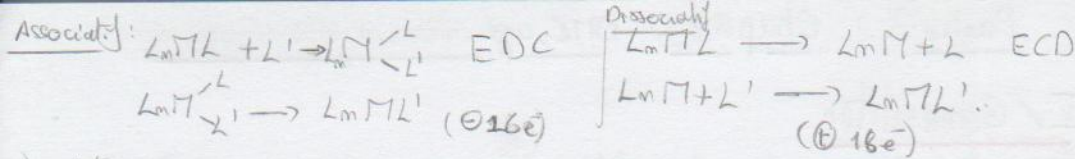 Associatif: LnML + L' → LnM L L' EDC
LnM L L' → LnML' (⊖16e⁻)
Dissociatif
LnML → LnM + L ECD
LnM + L' → LnML'..
(⊕ 18e⁻)